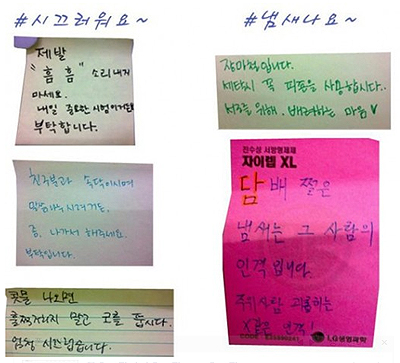 #시끄러워요~
제발
"흠흠" 소리내지
마세요.
내일 중요한 시험이거든요
부탁합니다.
친구분과 속닥이시며
말씀나누시려거든.
좀, 나가서 해주세요.
부탁입니다.
콧물 나오면
훌쩍거리지 말고 코를 풉시다.
엄청 시끄럽습니다.
#냄새나요~
장마철입니다.
세탁시 꼭 피죤을 사용합시다..
서로를 위해. 배려하는 마음
전수성 서방형제제
자이렙 XL
담배 쩔은
냄새는 그 사람의
인격입니다.
주위사람 괴롭히는
X같은 인격!
CODE
LG생명과학